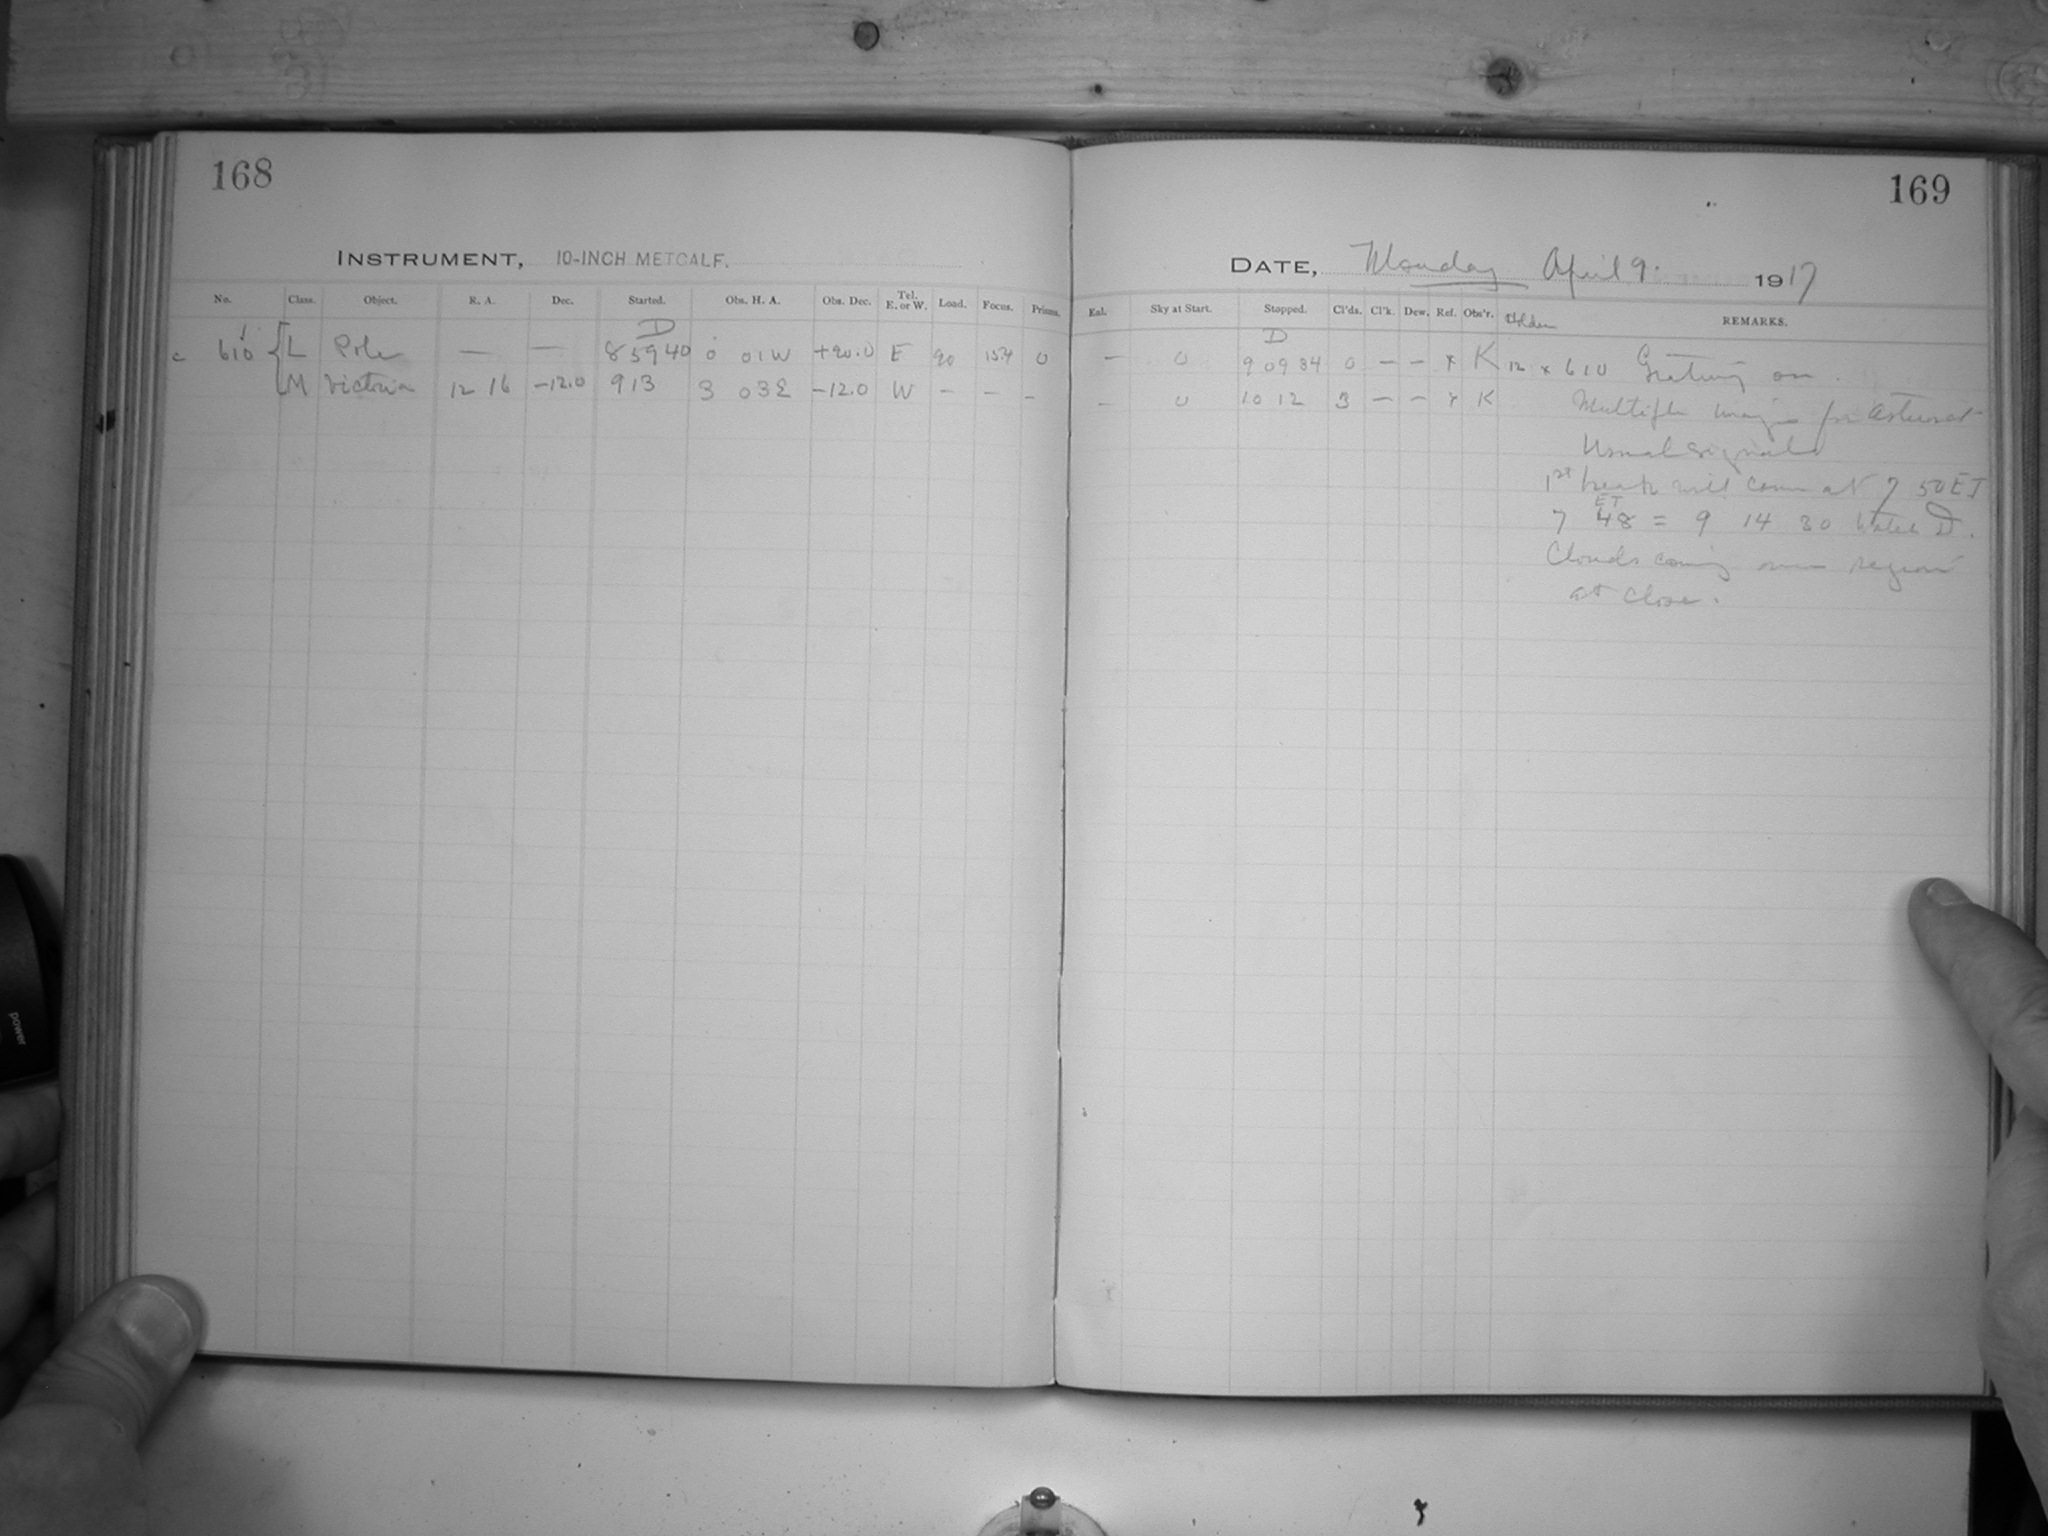 168
INSTRUMENT, 10-INCH METCALF.
No. Class. Object. R. A. Dec. Started. Obs. H. A. Obs. Dec. Tel. E. or W. Load. Focus. Prisms.
D
c 610 L Pole — — 8 59 40 0 01W +90.0 E 90 15.4 0
M Victoria 12 16 -12.0 9 13 3 03E -12.0 W - - -
169
DATE, Monday April 9. 1917
Exl. Sky at Start. Stopped. Cl'ds. Cl'k. Dew. Ref. Obs'r. Holder REMARKS.
D
— 0 9 09 34 0 - - x K 12 x 610 Grating on.
- 0 10 12 3 - - x K Multiple images for Asteroid
Usual signals
1st break will come at 7 50 ET
7 48 ET = 9 14 30 Watch D.
Clouds coming over region
at close.
power